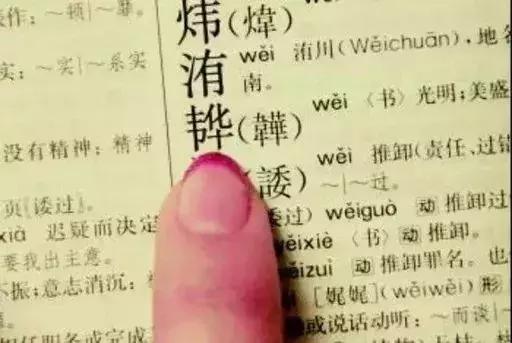 作：～顿｜～靡。
实：～实｜～系实
没有精神：精神
[诿过]
xià 迟疑而决定
要我出主意。
不振；意志消沉：
任职务或完成
炜(煒)
洧 wěi 洧川(Wěichuān)，地名
南。
(韡) wěi 〈书〉光明；美盛
諉) wěi 推卸(责任、过错
～｜～过。
过) wěiguò 动 推卸过
wěixiè 〈书〉动 推卸。
wěizuì 动 推卸罪名。也
[娓娓](wěiwěi) 形
或说话动听：～而谈｜～